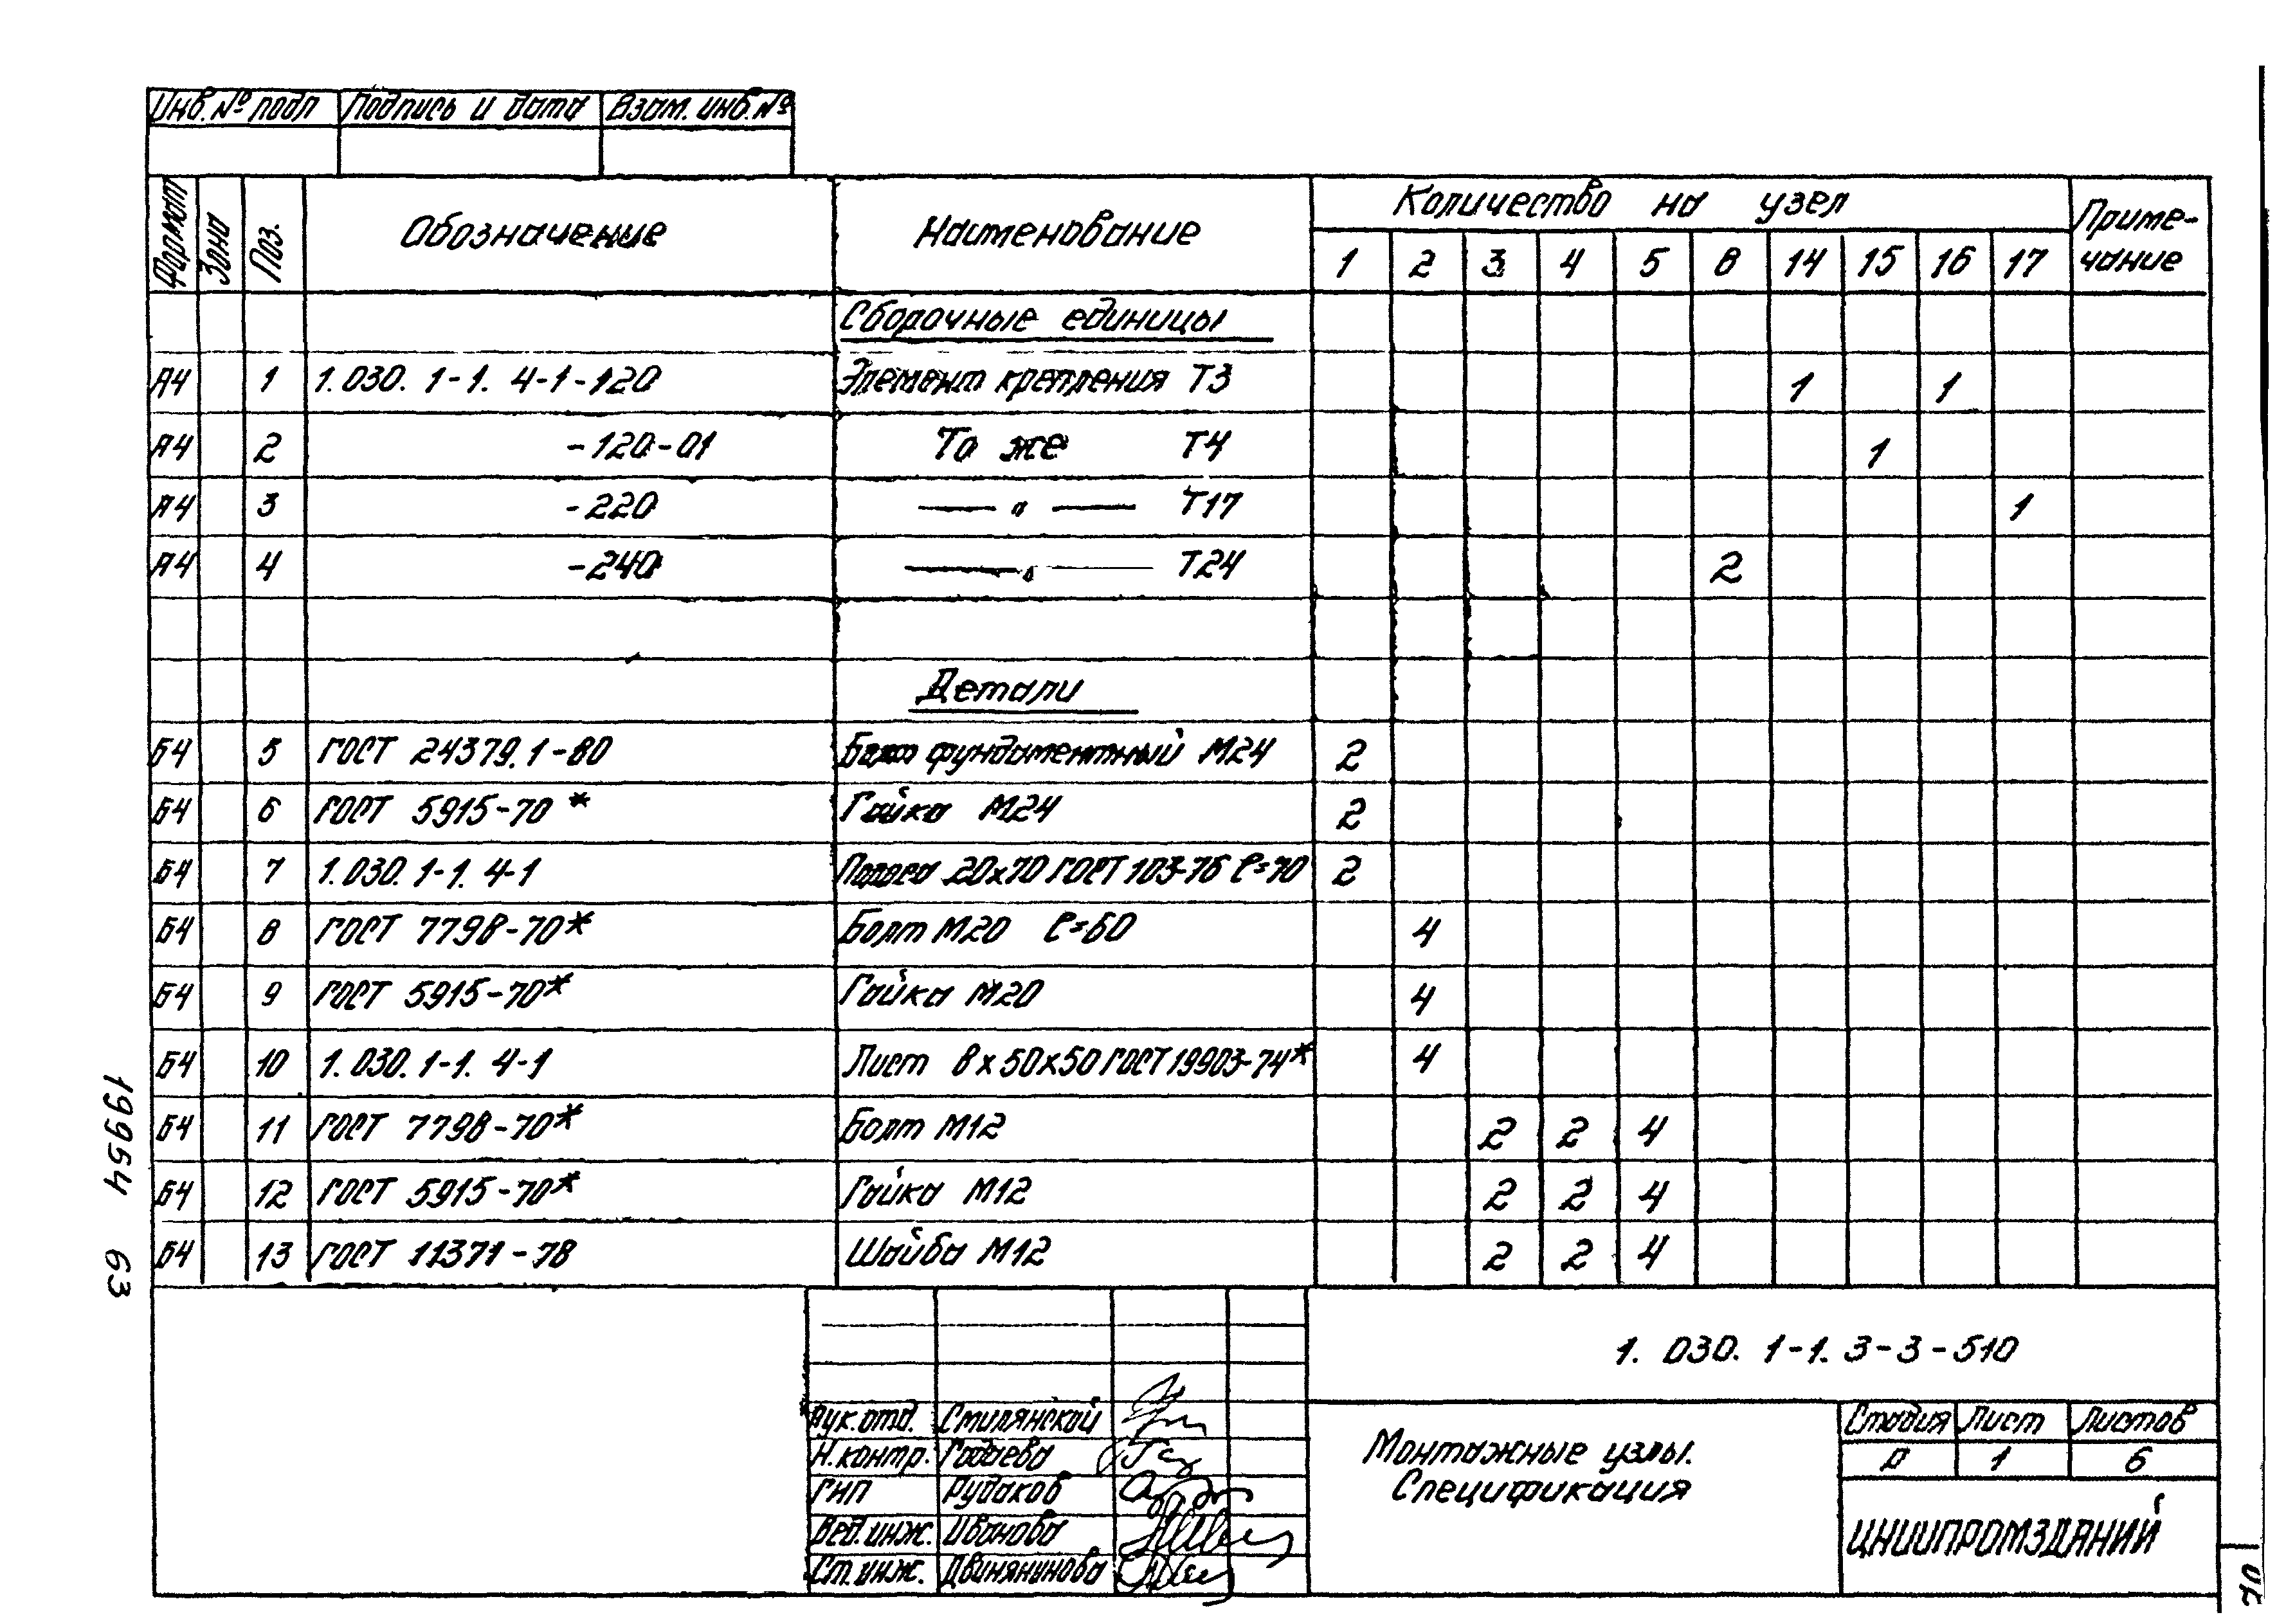 Инв.№ подл Подпись и дата Взам. инв.№
Формат Зона Поз. Обозначение Наименование Количество на узел Приме-
чание
1 2 3 4 5 8 14 15 16 17
Сборочные единицы
А4 1 1.030.1-1. 4-1-120 Элемент крепления Т3 1 1
А4 2 -120-01 То же Т4 1
А4 3 -220 — " — Т17 1
А4 4 -240 — " — Т24 2
Детали
Б4 5 ГОСТ 24379.1-80 Болт фундаментный М24 2
Б4 6 ГОСТ 5915-70* Гайка М24 2
Б4 7 1.030.1-1. 4-1 Полоса 20х70 ГОСТ 103-76 ℓ=70 2
Б4 8 ГОСТ 7798-70* Болт М20 ℓ=60 4
Б4 9 ГОСТ 5915-70* Гайка М20 4
Б4 10 1.030.1-1. 4-1 Лист 8х50х50 ГОСТ 19903-74* 4
Б4 11 ГОСТ 7798-70* Болт М12 2 2 4
Б4 12 ГОСТ 5915-70* Гайка М12 2 2 4
Б4 13 ГОСТ 11371-78 Шайба М12 2 2 4
19954 63
1.030.1-1.3-3-510
Рук.отд. Смилянский
Н.контр.
ГИП Рудаков
Вед.инж. Иванова
Ст.инж. Двинянинова
Монтажные узлы.
Спецификация
Стадия Лист Листов
Р 1 6
ЦНИИПРОМЗДАНИЙ
70